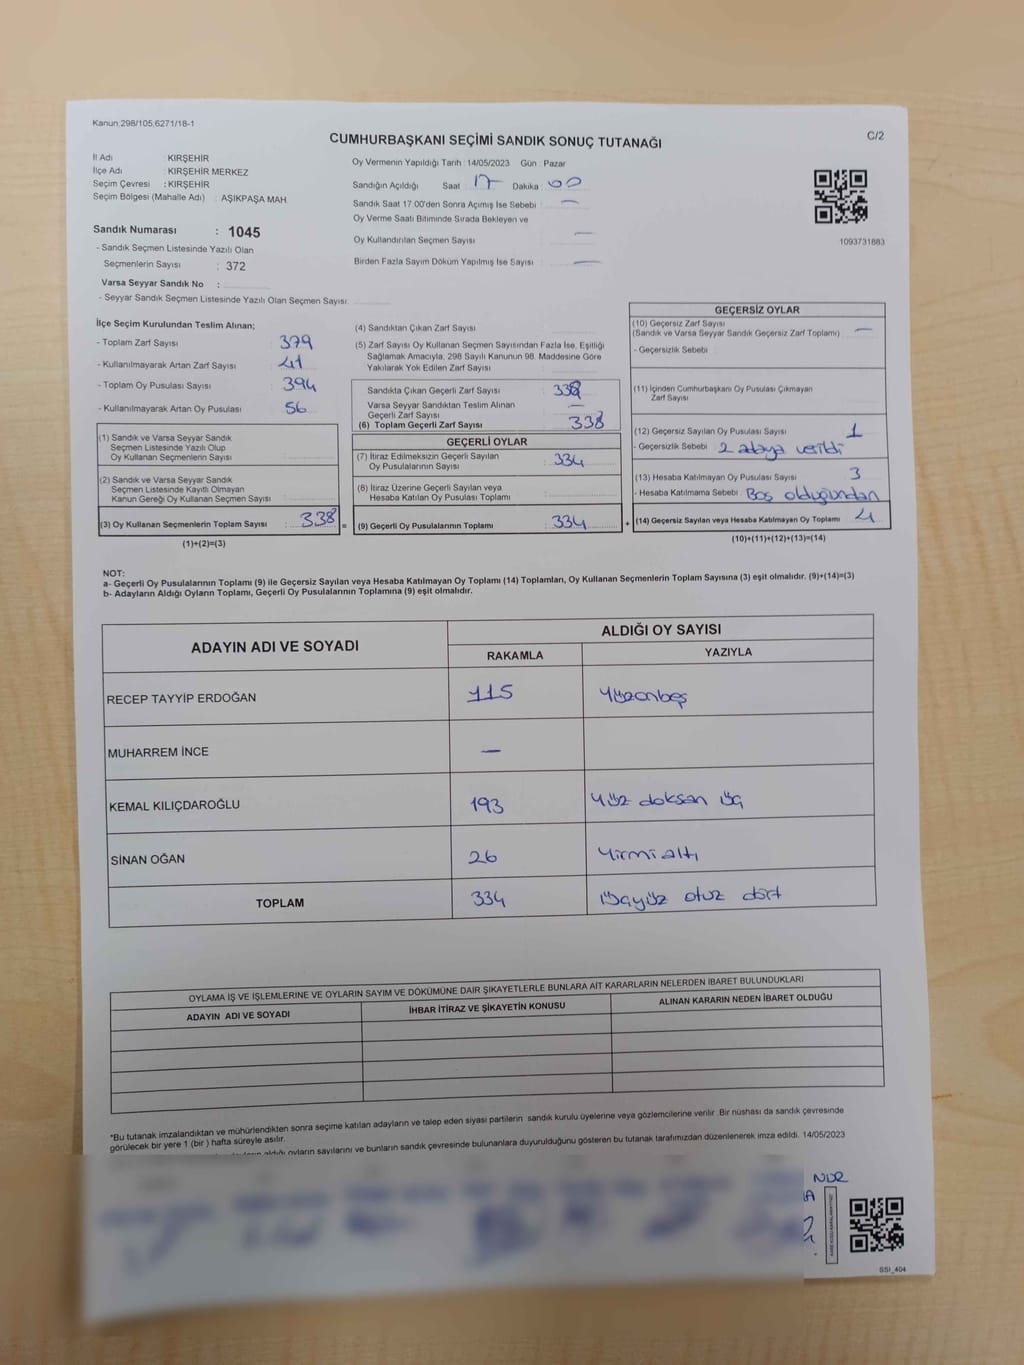 Kanun;298/105,6271/18-1
C/2
CUMHURBAŞKANI SEÇİMİ SANDIK SONUÇ TUTANAĞI
İl Adı : KIRŞEHİR
İlçe Adı : KIRŞEHİR MERKEZ
Seçim Çevresi : KIRŞEHİR
Seçim Bölgesi (Mahalle Adı) : AŞIKPAŞA MAH.
Sandık Numarası : 1045
- Sandık Seçmen Listesinde Yazılı Olan
Seçmenlerin Sayısı : 372
Varsa Seyyar Sandık No :
- Seyyar Sandık Seçmen Listesinde Yazılı Olan Seçmen Sayısı:
Oy Vermenin Yapıldığı Tarih : 14/05/2023 Gün : Pazar
Sandığın Açıldığı Saat : 17 Dakika : 00
Sandık 17.00'den Sonra Açımış İse Sebebi : —
Oy Verme Saati Bitiminde Sırada Bekleyen ve
Oy Kullandırılan Seçmen Sayısı : —
Birden Fazla Sayım Döküm Yapılmış İse Sayısı : —
1093731883
İlçe Seçim Kurulundan Teslim Alınan;
- Toplam Zarf Sayısı : 379
- Kullanılmayarak Artan Zarf Sayısı : 41
- Toplam Oy Pusulası Sayısı : 394
- Kullanılmayarak Artan Oy Pusulası : 56
(1) Sandık ve Varsa Seyyar Sandık
Seçmen Listesinde Yazılı Olup
Oy Kullanan Seçmenlerin Sayısı :
(2) Sandık ve Varsa Seyyar Sandık
Seçmen Listesinde Kayıtlı Olmayan
Kanun Gereği Oy Kullanan Seçmen Sayısı :
(3) Oy Kullanan Seçmenlerin Toplam Sayısı : 338 =
(1)+(2)=(3)
(4) Sandıktan Çıkan Zarf Sayısı :
(5) Zarf Sayısı Oy Kullanan Seçmen Sayısından Fazla İse, Eşitliği
Sağlamak Amacıyla, 298 Sayılı Kanunun 98. Maddesine Göre
Yakılarak Yok Edilen Zarf Sayısı :
Sandıkta Çıkan Geçerli Zarf Sayısı : 338
Varsa Seyyar Sandıktan Teslim Alınan
Geçerli Zarf Sayısı : —
(6) Toplam Geçerli Zarf Sayısı : 338
GEÇERLİ OYLAR
(7) İtiraz Edilmeksizin Geçerli Sayılan
Oy Pusulalarının Sayısı : 334
(8) İtiraz Üzerine Geçerli Sayılan veya
Hesaba Katılan Oy Pusulası Toplamı :
(9) Geçerli Oy Pusulalarının Toplamı : 334 +
GEÇERSİZ OYLAR
(10) Geçersiz Zarf Sayısı
(Sandık ve Varsa Seyyar Sandık Geçersiz Zarf Toplamı) : —
- Geçersizlik Sebebi :
(11) İçinden Cumhurbaşkanı Oy Pusulası Çıkmayan
Zarf Sayısı :
(12) Geçersiz Sayılan Oy Pusulası Sayısı : 1
- Geçersizlik Sebebi : 2 adaya verildi
(13) Hesaba Katılmayan Oy Pusulası Sayısı : 3
- Hesaba Katılmama Sebebi : Boş olduğundan
(14) Geçersiz Sayılan veya Hesaba Katılmayan Oy Toplamı : 4
(10)+(11)+(12)+(13)=(14)
NOT:
a- Geçerli Oy Pusulalarının Toplamı (9) ile Geçersiz Sayılan veya Hesaba Katılmayan Oy Toplamı (14) Toplamları, Oy Kullanan Seçmenlerin Toplam Sayısına (3) eşit olmalıdır. (9)+(14)=(3)
b- Adayların Aldığı Oyların Toplamı, Geçerli Oy Pusulalarının Toplamına (9) eşit olmalıdır.
ADAYIN ADI VE SOYADI ALDIĞI OY SAYISI
RAKAMLA YAZIYLA
RECEP TAYYİP ERDOĞAN 115 Yüzonbeş
MUHARREM İNCE —
KEMAL KILIÇDAROĞLU 193 Yüz doksan üç
SİNAN OĞAN 26 Yirmi altı
TOPLAM 334 üçyüz otuz dört
OYLAMA İŞ VE İŞLEMLERİNE VE OYLARIN SAYIM VE DÖKÜMÜNE DAİR ŞİKAYETLERLE BUNLARA AİT KARARLARIN NELERDEN İBARET BULUNDUKLARI
ADAYIN ADI VE SOYADI İHBAR İTİRAZ VE ŞİKAYETİN KONUSU ALINAN KARARIN NEDEN İBARET OLDUĞU
*Bu tutanak imzalandıktan ve mühürlendikten sonra seçime katılan adayların ve talep eden siyasi partilerin sandık kurulu üyelerine veya gözlemcilerine verilir. Bir nüshası da sandık çevresinde
görülecek bir yere 1 (bir) hafta süreyle asılır.
aldığı oyların sayılarını ve bunların sandık çevresinde bulunanlara duyurulduğunu gösteren bu tutanak tarafımızdan düzenlenerek imza edildi. 14/05/2023
SSI_404